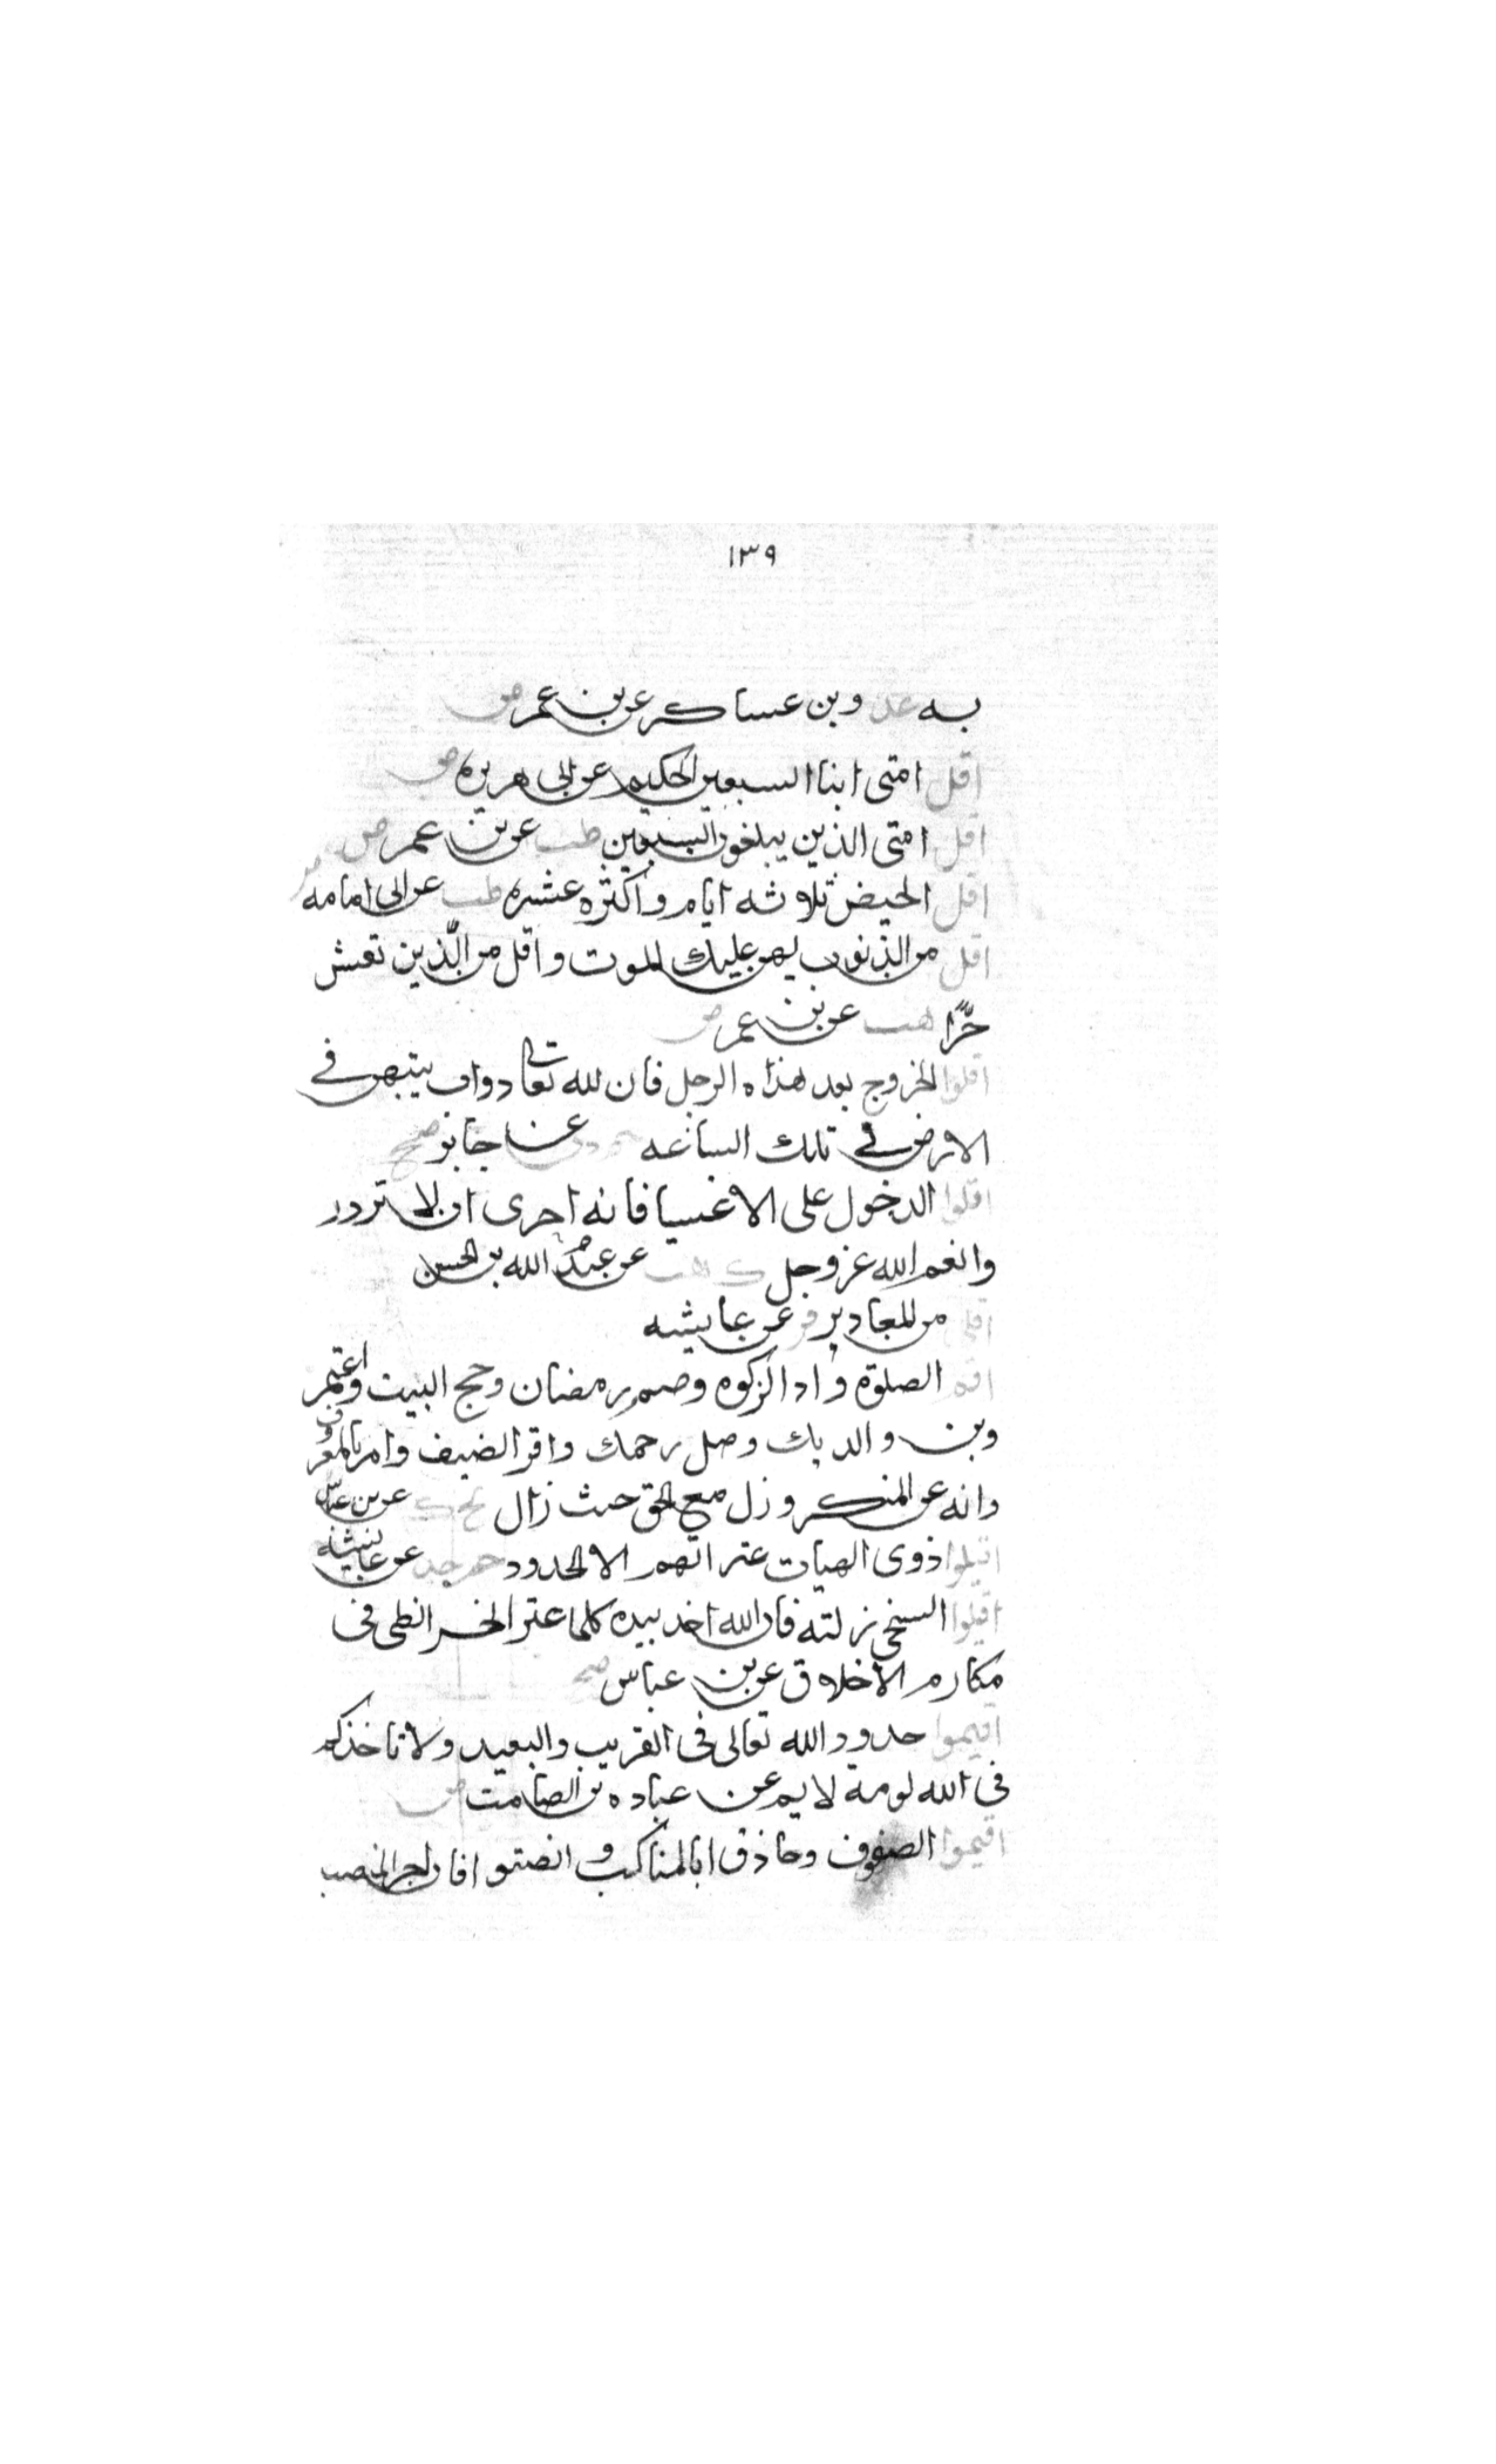 ١٣٩
به عد وبن عساكر عن بن عمر ض
اقل امتى ابنا السبعين الحكيم عن ابى هريره ض
اقل امتى الذين يبلغون السبعين طب عن بن عمر ض
اقل الحيض ثلاثه ايام واكثره عشره طب عن ابى امامه
اقل من الذنوب يهن عليك الموت واقل من الدّين تعش
حرًّا هب عن بن عمر ض
اقلوا الخروج بعد هذاه الرجل فان لله تعالى دواب يبثهن فى
الارض فى تلك الساعه عن جابر صح
اقلوا الدخول على الاغنيا فانه احرى ان لا تزدر
وانعم الله عز وجل ك هب عن عبد الله بن الحسن
اقلى من المعادير فر عن عايشه
اقم الصلوة واد الزكوه وصم رمضان وحج البيت واعتمر
وبن والديك وصل رحمك واقر الضيف وامر بالمعروف
وانه عن المنكر وزل مع الحق حيث زال تخ ك عن بن عباس
اقيلوا ذوى الهيات عثراتهم الا الحدود حم خد عن عايشه
اقيلوا السخى زلته فان الله اخد بيده كلما عثر الخرائطى فى
مكارم الاخلاق عن بن عباس صح
اقيموا حدود الله تعالى فى القريب والبعيد ولا تاخذكم
فى الله لومة لايم عن عباده بن الصامت ض
اقيموا الصفوف وحاذقوا بالمناكب وانصتوا فان اجر المنصب